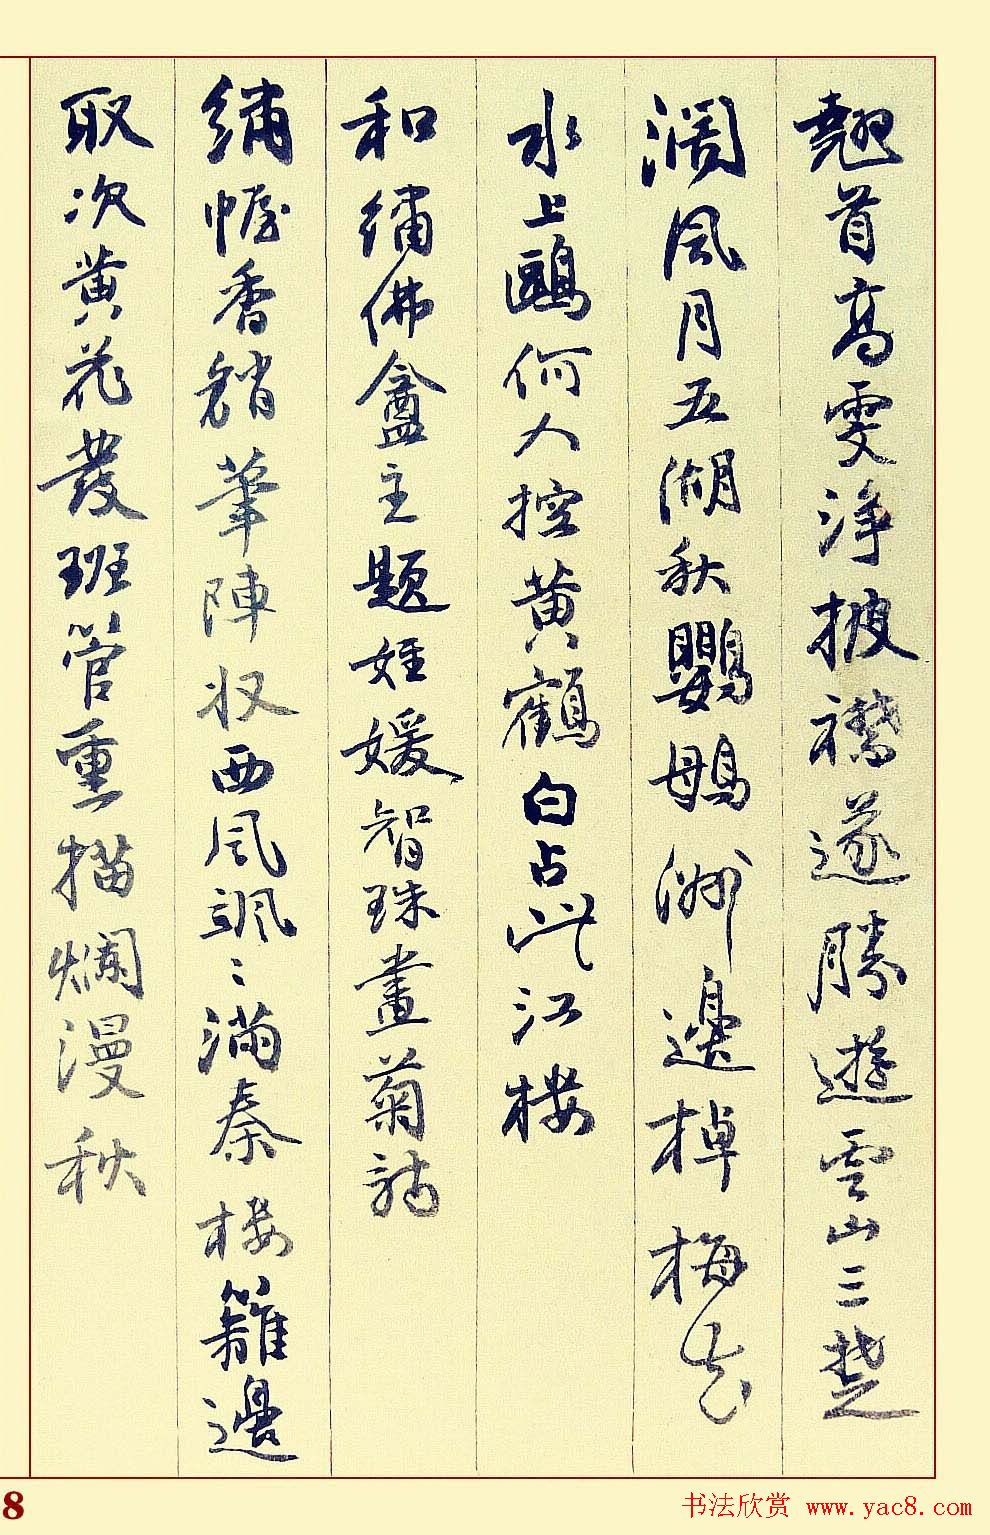 翹首高雯淨披襟遂勝遊雲山三楚
濶風月五湖秋鸚䳇洲邊棹梅花
水上鷗何人控黃鶴白占此江樓
和繡佛盦主題姪媛智珠畫菊詩
繡幄香銷筆陣收西風颯〻滿秦樓籬邊
取次黃花發班管重描爛漫秋
8
书法欣赏 www.yac8.com